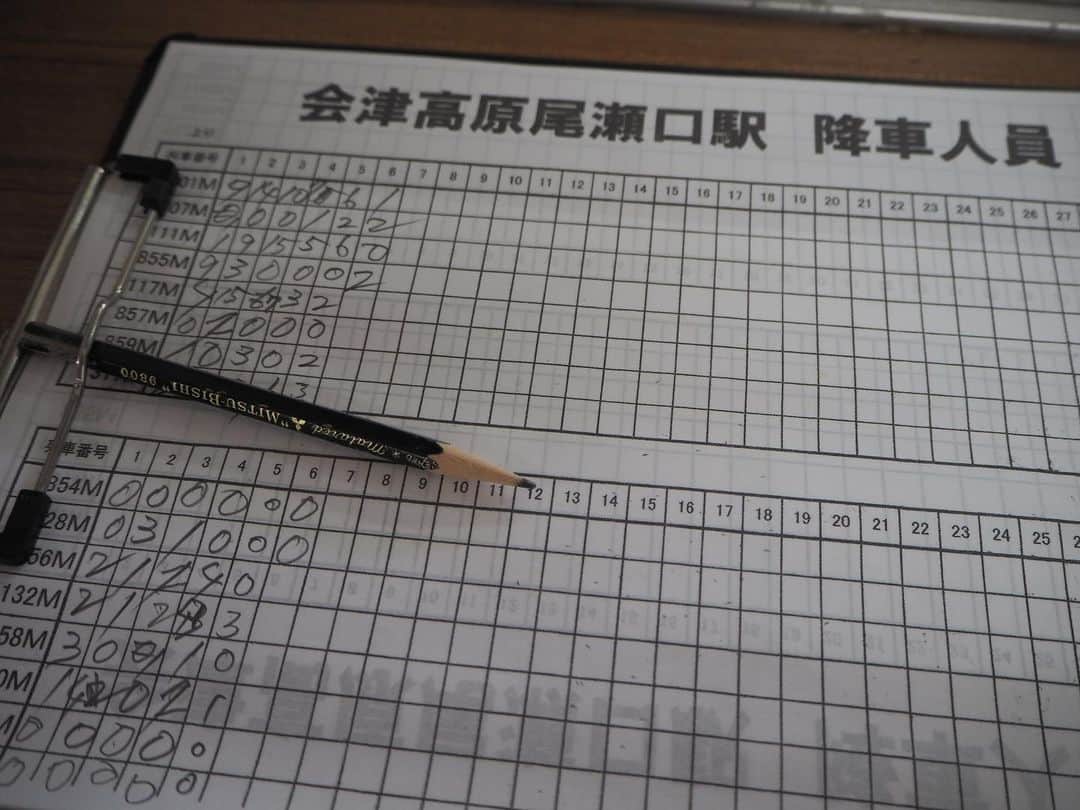 会津高原尾瀬口駅 降車人員
上り
列車番号 1 2 3 4 5 6 7 8 9 10 11 12 13 14 15 16 17 18 19 20 21 22 23 24 25 26 27
01M 6 1
07M 0 0 1 2 2
111M 1 9 15 5 6 0
855M 9 3 0 0 0 2
117M 3 2
857M 0 2 0 0 0
859M 1 0 3 0 2
3
"MITSU-BISHI" 9800
列車番号 1 2 3 4 5 6 7 8 9 10 11 12 13 14 15 16 17 18 19 20 21 22 23 24 25
854M 0 0 0 0 0 0
28M 0 3 1 0 0 0
56M 2 1 2 4 0
132M 2 1 2 3
58M 3 0 1 0
0M 0 2 1
M 0 0 0 0 0
0 0 0 0 0 0